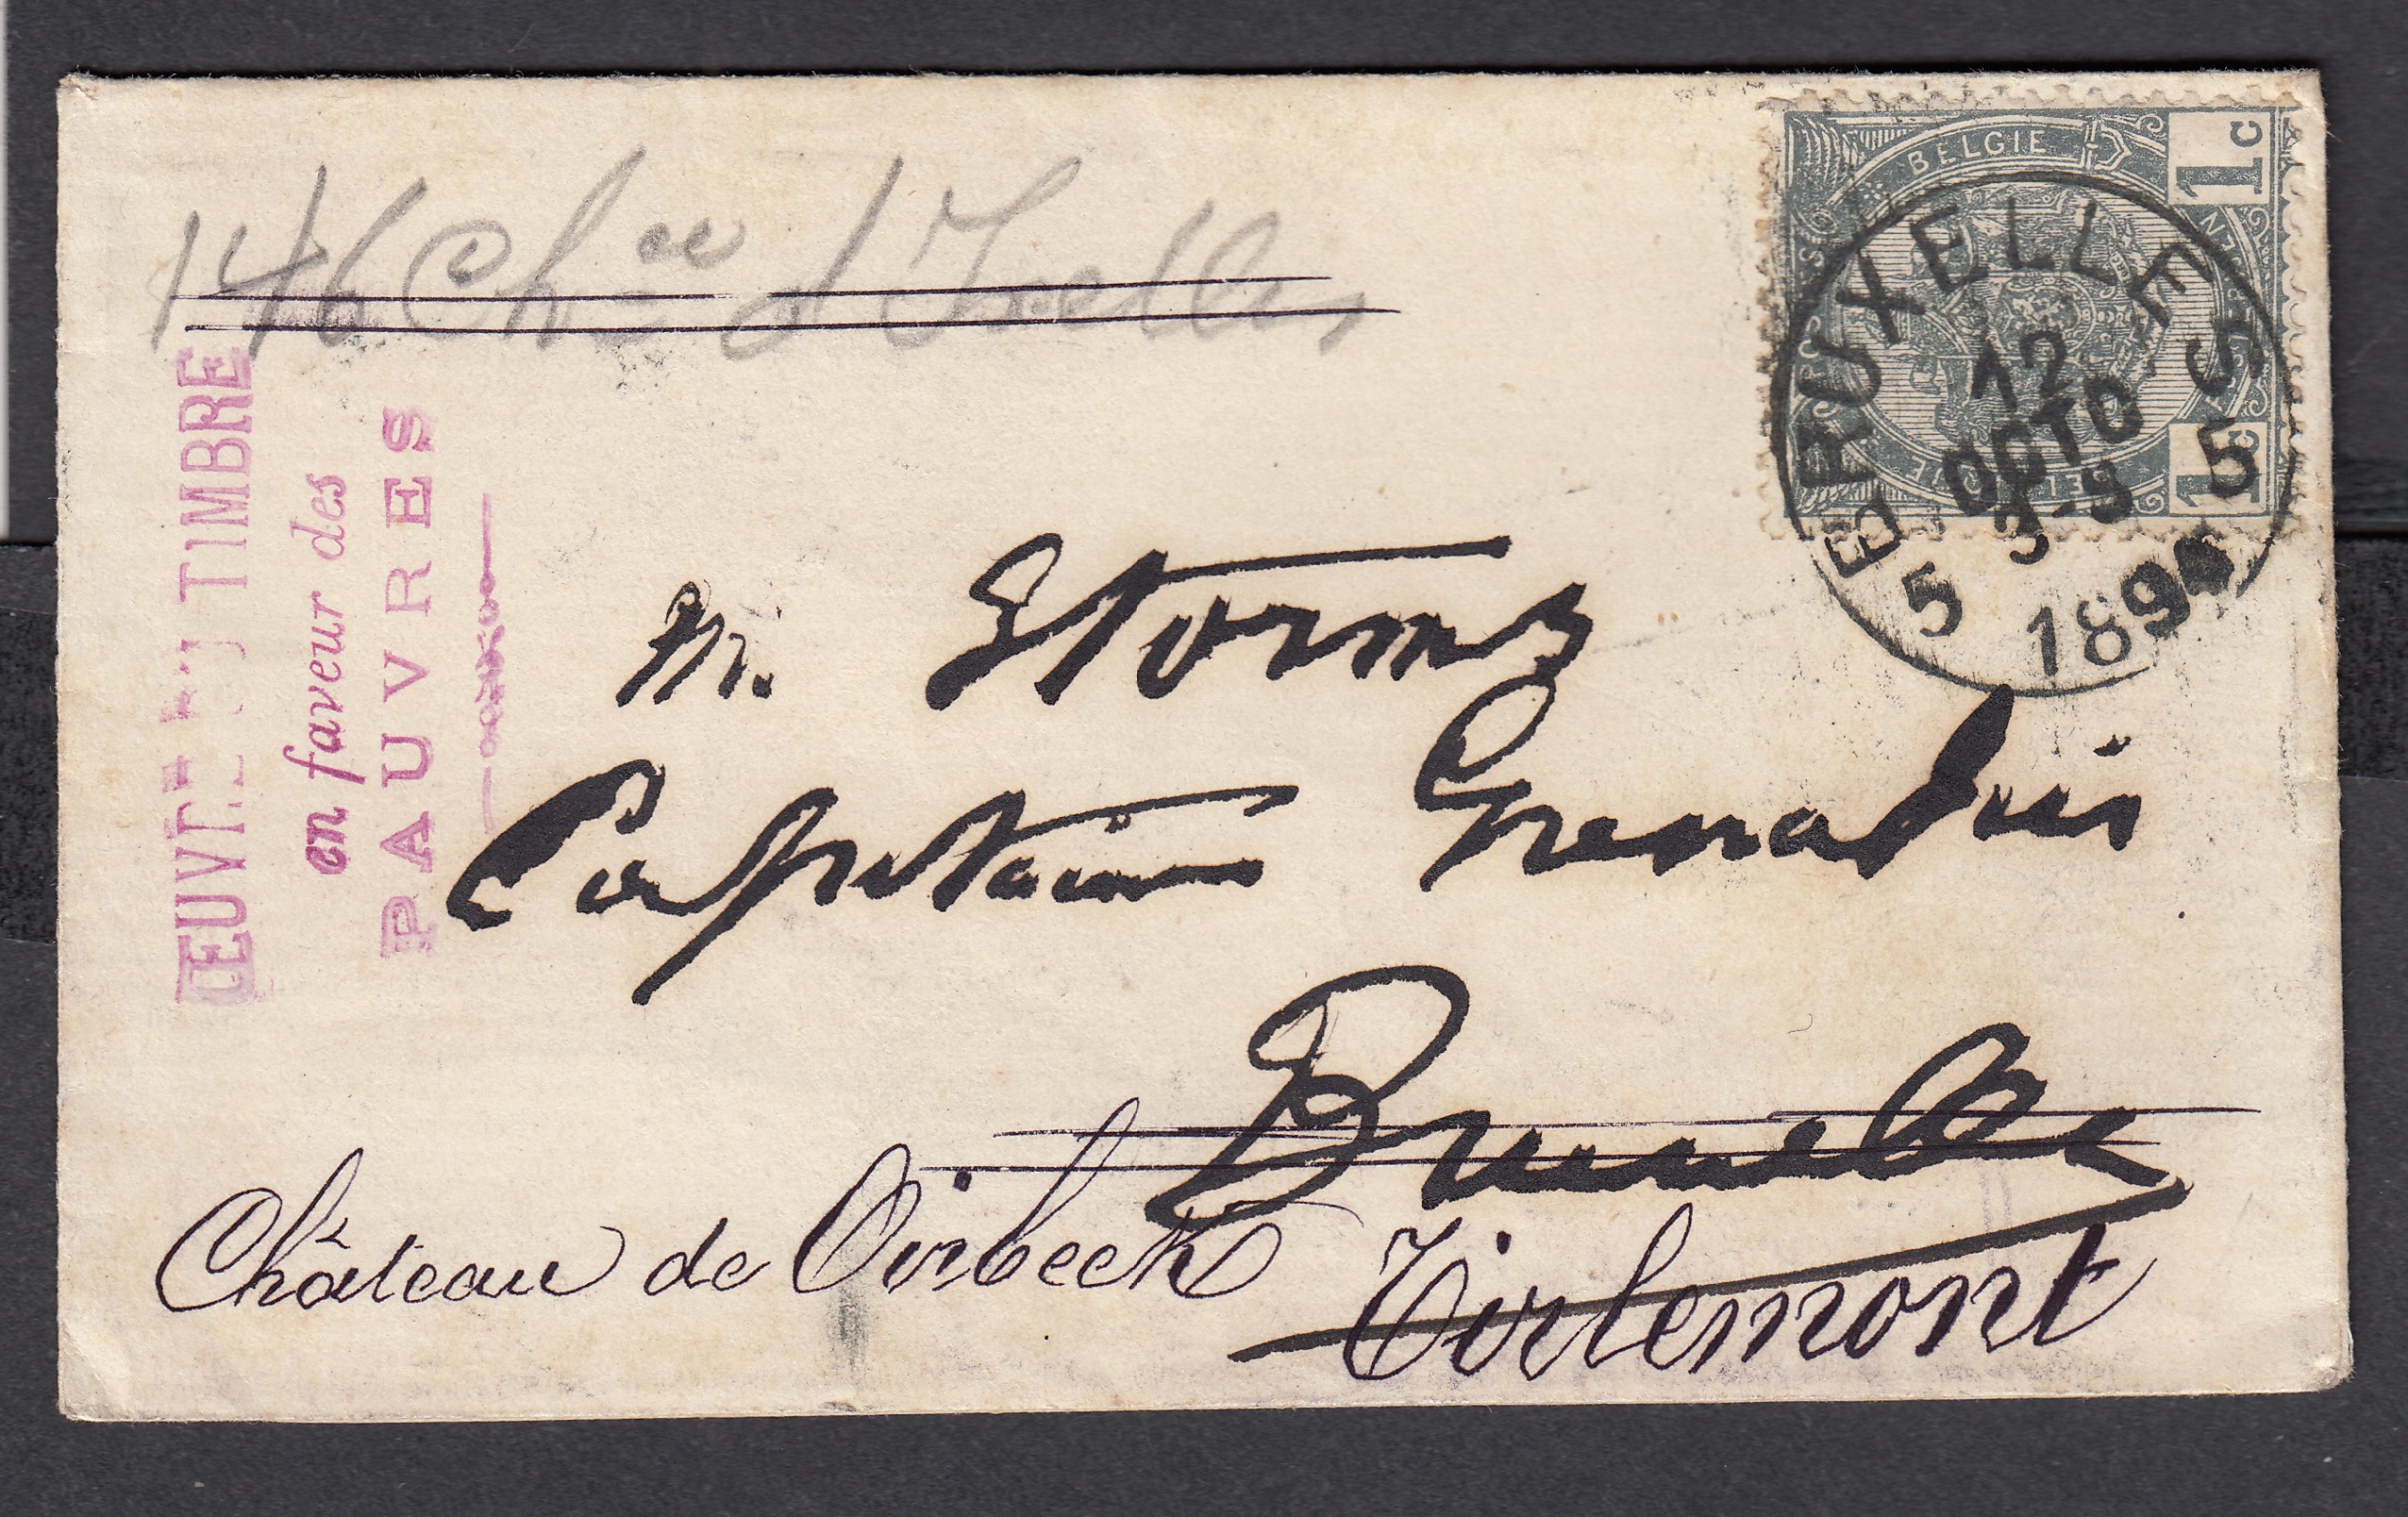 146 Chée d'Ixelles
BELGIE
1c
1c
BRUXELLES 5
12
OCTO
3-S
5 189
ŒUVRE DU TIMBRE
en faveur des
PAUVRES
M. Storms
Capitaine Grenadier
Bruxelles
Château de Oirbeek Tirlemont